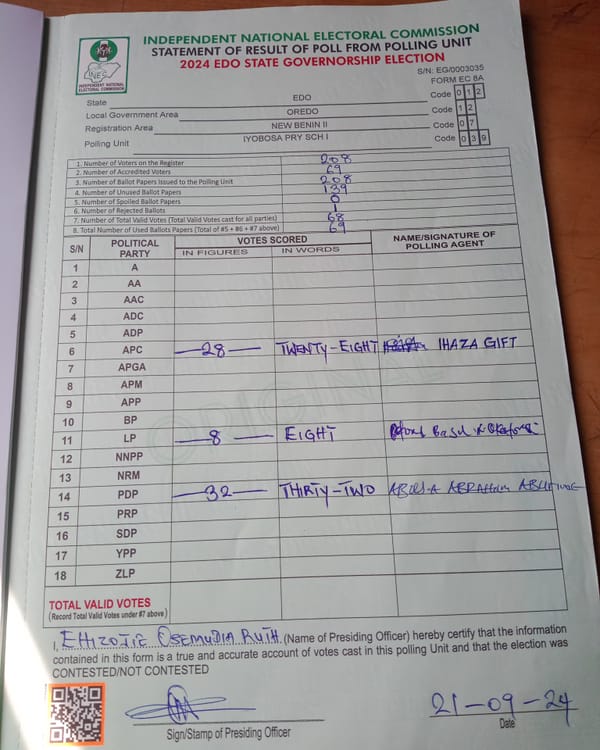 INDEPENDENT NATIONAL ELECTORAL COMMISSION
STATEMENT OF RESULT OF POLL FROM POLLING UNIT
2024 EDO STATE GOVERNORSHIP ELECTION
INEC
INDEPENDENT NATIONAL
ELECTORAL COMMISSION
S/N: EG/0003035
FORM EC 8A
State EDO Code 0 1 2
Local Government Area OREDO Code 1 2
Registration Area NEW BENIN II Code 0 7
Polling Unit IYOBOSA PRY SCH I Code 0 3 9
1. Number of Voters on the Register 208
2. Number of Accredited Voters 69
3. Number of Ballot Papers Issued to the Polling Unit 208
4. Number of Unused Ballot Papers 139
5. Number of Spoiled Ballot Papers 0
6. Number of Rejected Ballots 1
7. Number of Total Valid Votes (Total Valid Votes cast for all parties) 68
8. Total Number of Used Ballots Papers (Total of #5 + #6 + #7 above) 69
S/N POLITICAL PARTY VOTES SCORED NAME/SIGNATURE OF POLLING AGENT
IN FIGURES IN WORDS
1 A
2 AA
3 AAC
4 ADC
5 ADP
6 APC 28 TWENTY-EIGHT IHAZA GIFT
7 APGA
8 APM
9 APP
10 BP
11 LP 8 EIGHT
12 NNPP
13 NRM
14 PDP 32 THIRTY-TWO
15 PRP
16 SDP
17 YPP
18 ZLP
ORIGINAL
TOTAL VALID VOTES
(Record Total Valid Votes under #7 above)
I, EHIZOJIE OSEMUDIA RUTH (Name of Presiding Officer) hereby certify that the information
contained in this form is a true and accurate account of votes cast in this polling Unit and that the election was
CONTESTED/NOT CONTESTED
21-09-24
Sign/Stamp of Presiding Officer Date